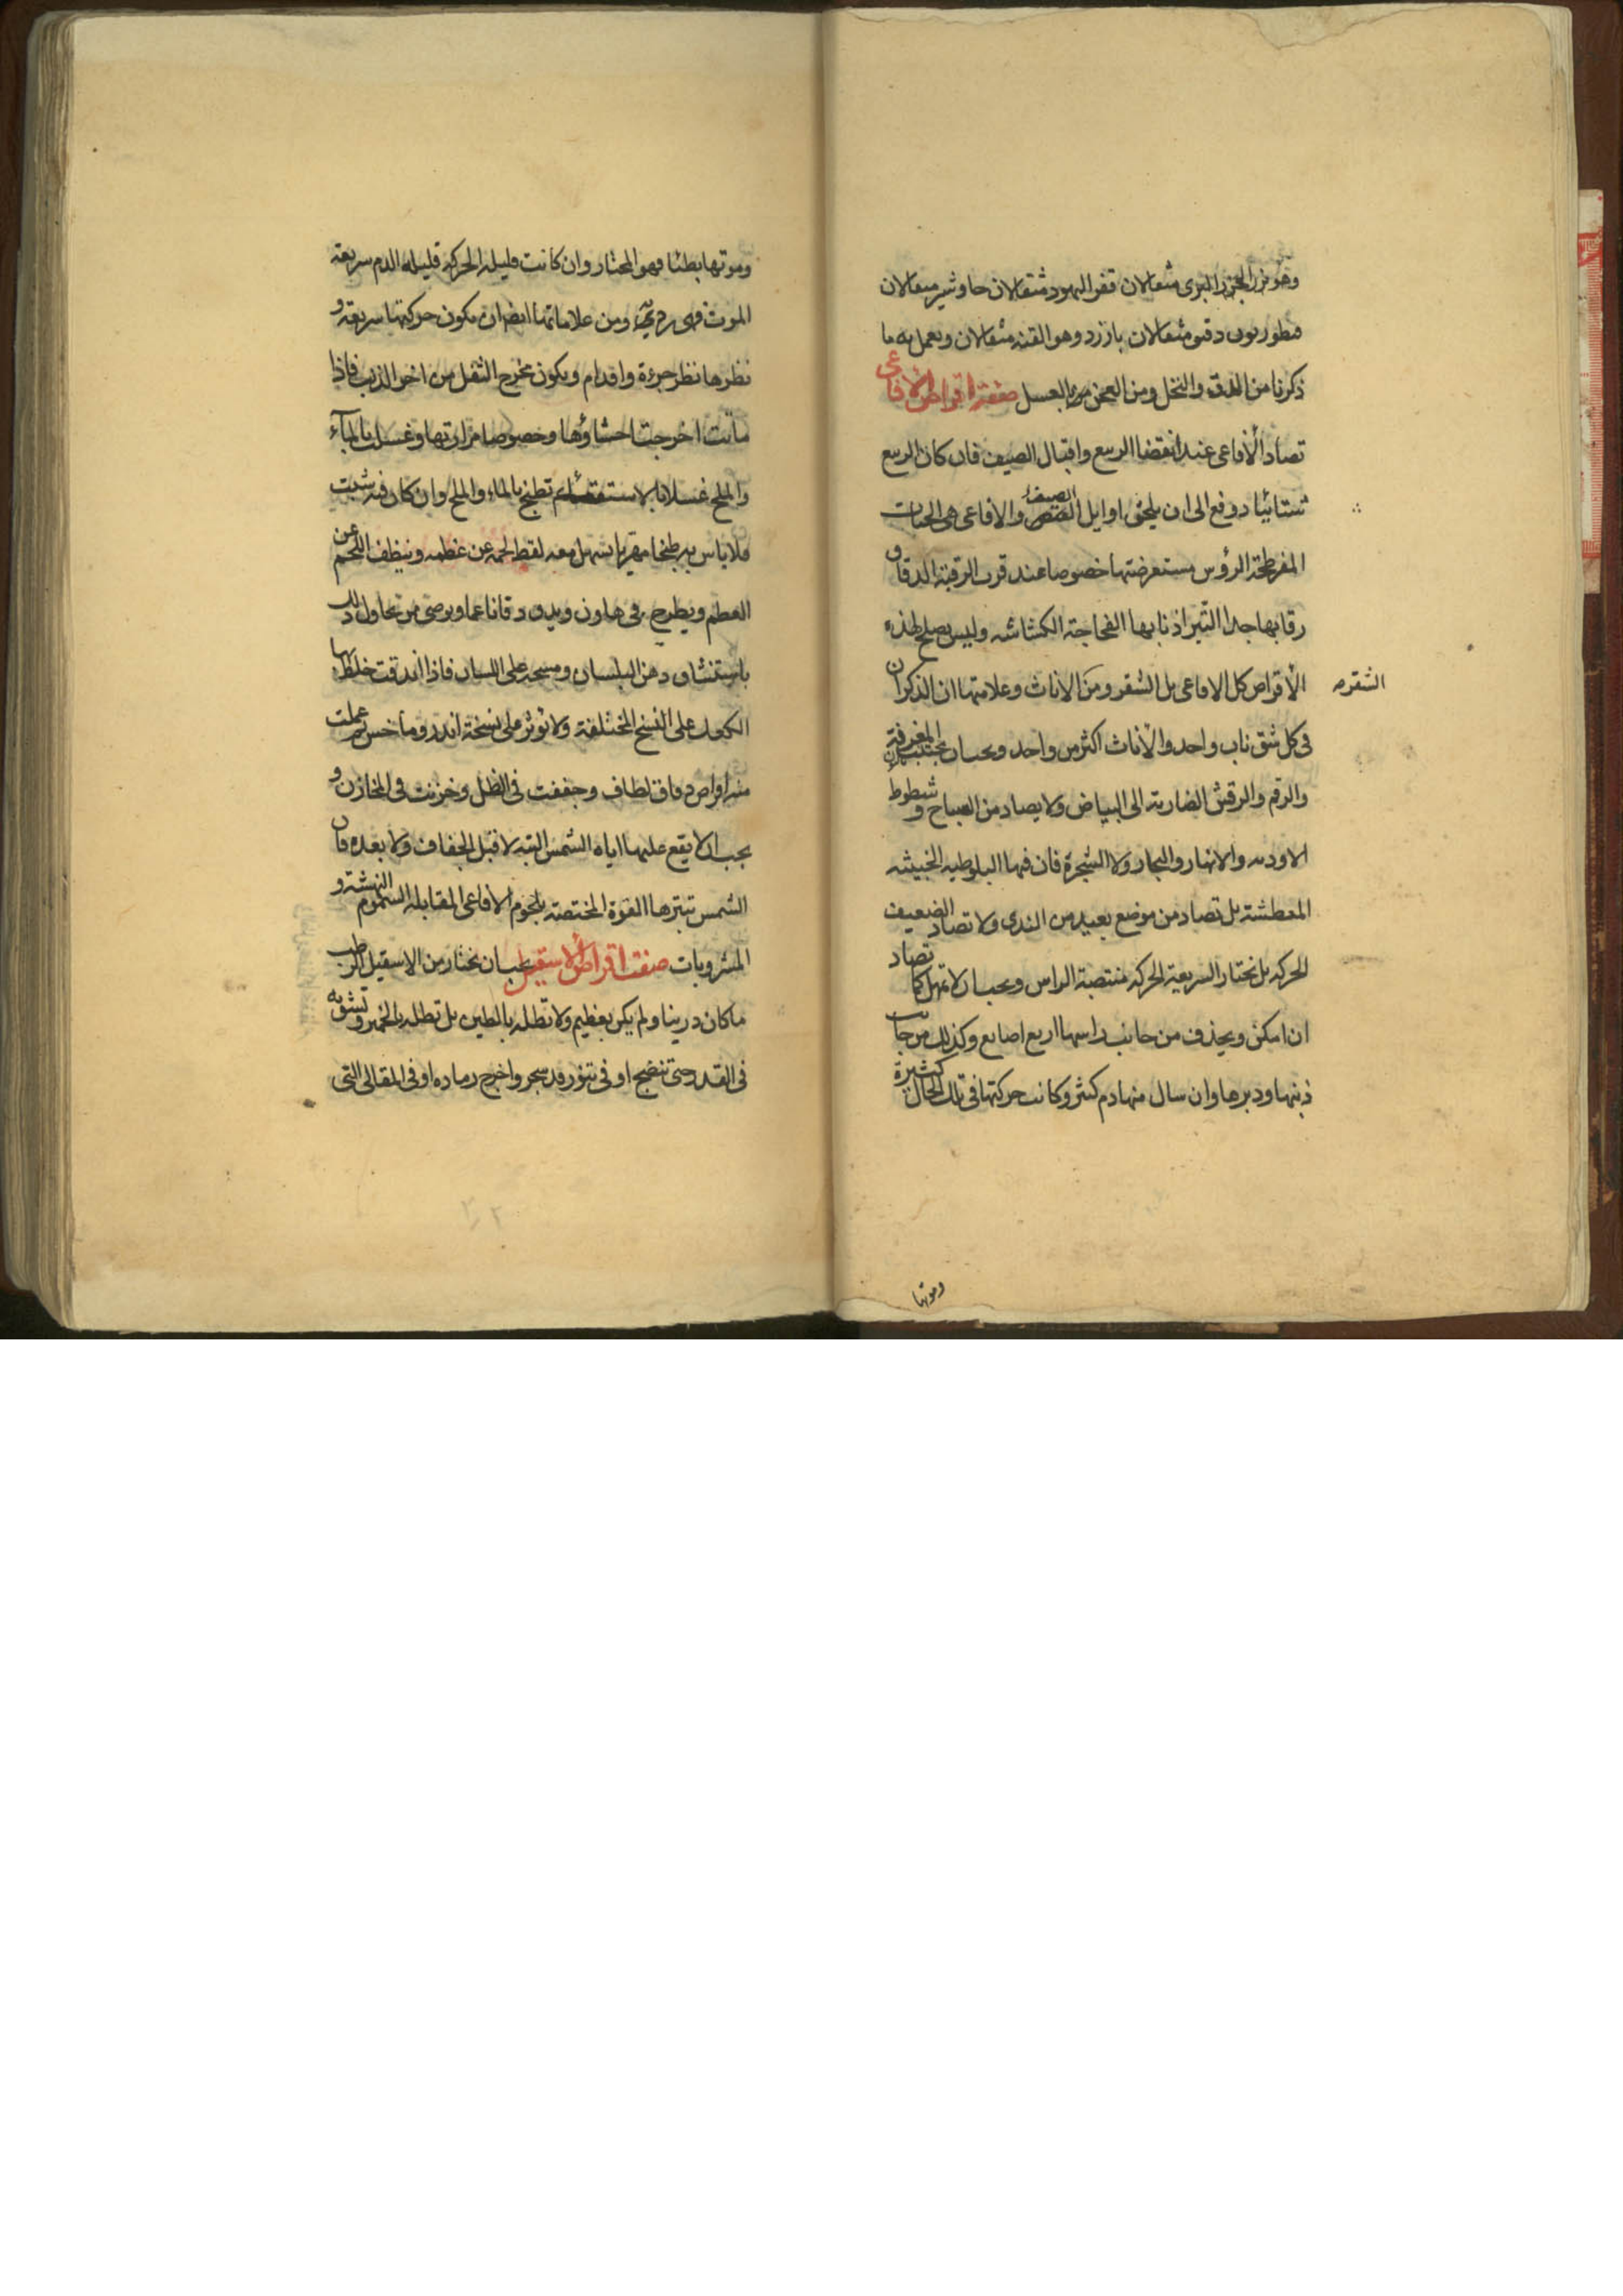 وهو بزر الجزر البرى مثقالان قفر اليهود مثقالان جاوشير مثقالان
قنطوريون دقيق مثقالان بارزد وهو القنه مثقالان ويعمل به ما
ذكرنا من الدق والنخل ومن العجن بالعسل صفة اقراص الافاعى
تصاد الأفاعى عند انقضا الربيع واقبال الصيف فان كان الربيع
شتائيا دوفع الى ان يلحق اوايل الصيف والافاعى هى الحيات
المفرطحة الرؤس مستعرضتها خصوصا عند قرب الرقبة الدقاق
رقابها جدا البتر اذنابها الفحاجة الكشاشه وليس يصلح لهذه
الأقراص كل الافاعى بل الشقر ومن الاناث وعلامتها ان الذكران
الشقره
فى كل شق ناب واحد والاناث اكثر من واحد ويجب ان يجتنب المغرفة
والرقم والرقش الضاربة الى البياض ولا يصاد من السباخ وشطوط
الاوديه والانهار والبحار ولا الشجرة فان فيها البلوطيه الخبيثه
المعطشة بل تصاد من موضع بعيد من الندى ولا تصاد الضعيف
الحركه بل نختار السريعة الحركه منتصبة الراس ويجب ان لا تمهل كما تصاد
ان امكن ويحذف من جانب راسها اربع اصابع وكذلك من جانب
ذنبها ودبرها وان سال منها دم كثير وكانت حركتها فى تلك الحال كثيرة
وموتها
وموتها بطئا فهو المختار وان كانت قليله الحركه قليله الدم سريعة
الموت فهى رديّة ومن علاماتها ايضا ان يكون حركتها سريعة و
نظرها نظر جرءة واقدام ويكون مخرج الثقل من اخر الذنب فاذا
ماتت اخرجت احشاؤها وخصوصا مرارتها وغسل بالمآء
والملح غسلا بالاستقصاء ثم تطبخ بالماء والملح وان كان فيه شبت
فلا باس به طبخا مهريا يسهل معه لقط لحمه عن عظمه وينظف اللحم عن
العظم ويطرح فى هاون ويدق دقا ناعما ويوصى من يحاول ذلك
باستنشاق دهن البلسان ومسحه على اللسان فاذا اندقت خلط بها
الكعك على النسخ المختلفة ولا نوثر على نسخة اندروماخس ثم عملت
منه اقراص دقاق لطاف وجففت فى الظل وخزنت فى المخازن و
يجب ان لا يقع عليها اياه الشمس البته لا قبل الجفاف ولا بعده فان
الشمس تبترها القوة المختصة بلحوم الافاعى المقابلة السموم النهشة و
المشروبات صفت اقراص الأسقيل يجب ان نختار من الاسقيل الرطب
ما كان رزينا ولم يكن بعظيم ولا تطله بالطين بل تطله بالخمير وتشويه
فى القدر حتى تنضج او فى تنور قد سجر واخرج رماده او فى المقالى التى